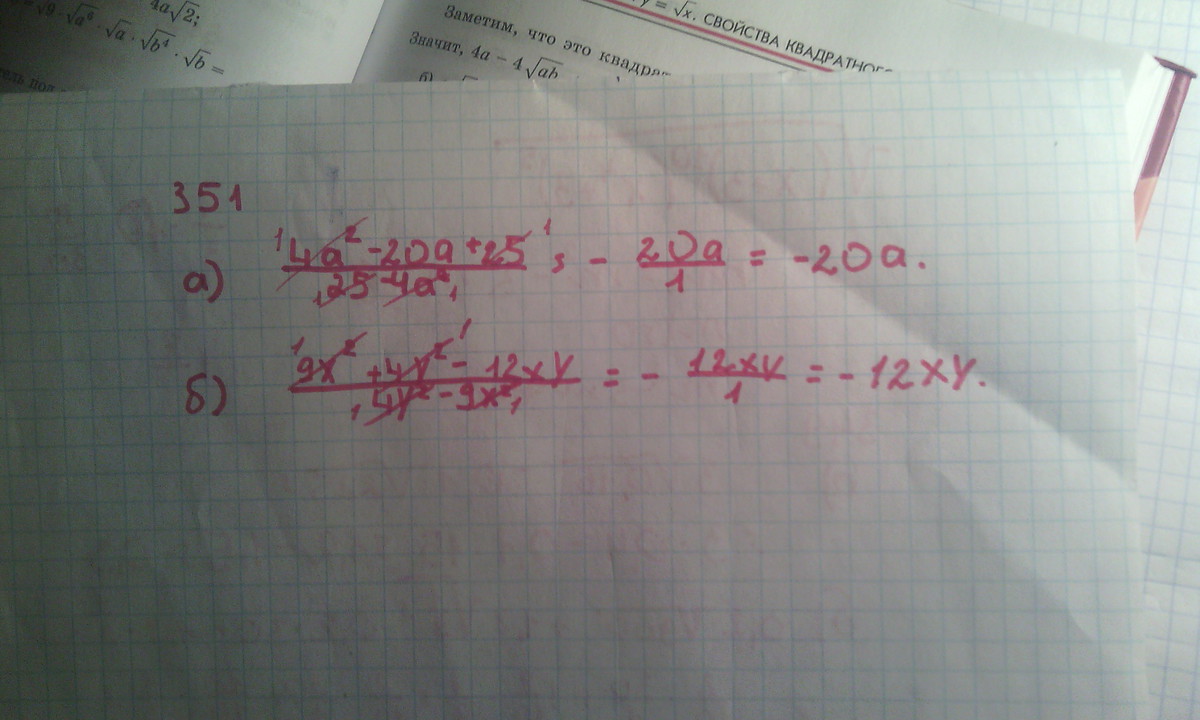 4a√2;
√9 · √a⁶ · √a · √b⁴ · √b =
y = √x. СВОЙСТВА КВАДРАТНОГО
Заметим, что это квадрат
Значит, 4a − 4√ab
351
а) ¹4a² -20a +25 ¹ / ₁25 -4a²₁ = - 20a / 1 = -20a.
б) ¹9x² +4y² ¹ - 12xy / ₁4y² - 9x²₁ = - 12xy / 1 = -12xy.